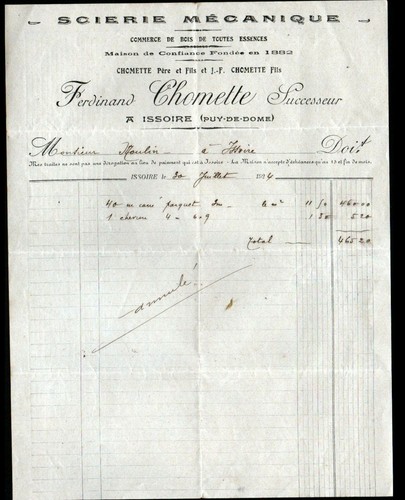 SCIERIE MÉCANIQUE
COMMERCE DE BOIS DE TOUTES ESSENCES
Maison de Confiance Fondée en 1882
CHOMETTE Père et Fils et J.-F. CHOMETTE Fils
Ferdinand Chomette Successeur
A ISSOIRE (PUY-DE-DOME)
Monsieur Moulin à Issoire Doit
Mes traites ne sont pas une dérogation au lieu de paiement qui est à Issoire - La Maison n'accepte d'échéances qu'au 15 et fin de mois.
ISSOIRE le 20 Juillet 1914
40 m carré parquet 11 50 460 00
1 chevron 4 6.9 1 30 5 20
Total 465 20
annulé